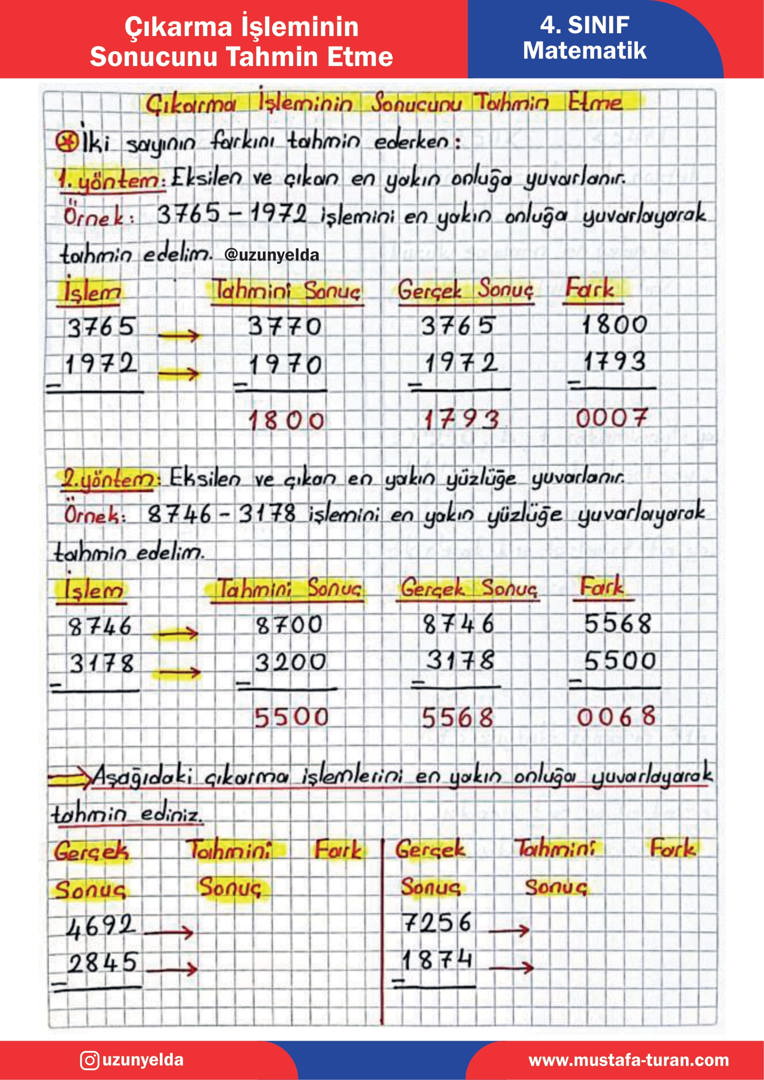 Çıkarma İşleminin
Sonucunu Tahmin Etme
4. SINIF
Matematik
Çıkarma İşleminin Sonucunu Tahmin Etme
İki sayının farkını tahmin ederken:
1. yöntem: Eksilen ve çıkan en yakın onluğa yuvarlanır.
Örnek: 3765 - 1972 işlemini en yakın onluğa yuvarlayarak
tahmin edelim. @uzunyelda
İşlem Tahmini Sonuç Gerçek Sonuç Fark
3765 → 3770 3765 1800
- 1972 → - 1970 - 1972 - 1793
1800 1793 0007
2. yöntem: Eksilen ve çıkan en yakın yüzlüğe yuvarlanır.
Örnek: 8746 - 3178 işlemini en yakın yüzlüğe yuvarlayarak
tahmin edelim.
İşlem Tahmini Sonuç Gerçek Sonuç Fark
8746 → 8700 8746 5568
- 3178 → - 3200 - 3178 - 5500
5500 5568 0068
→ Aşağıdaki çıkarma işlemlerini en yakın onluğa yuvarlayarak
tahmin ediniz.
Gerçek Tahmini Fark Gerçek Tahmini Fark
Sonuç Sonuç Sonuç Sonuç
4692 → 7256 →
- 2845 → - 1874 →
uzunyelda
www.mustafa-turan.com